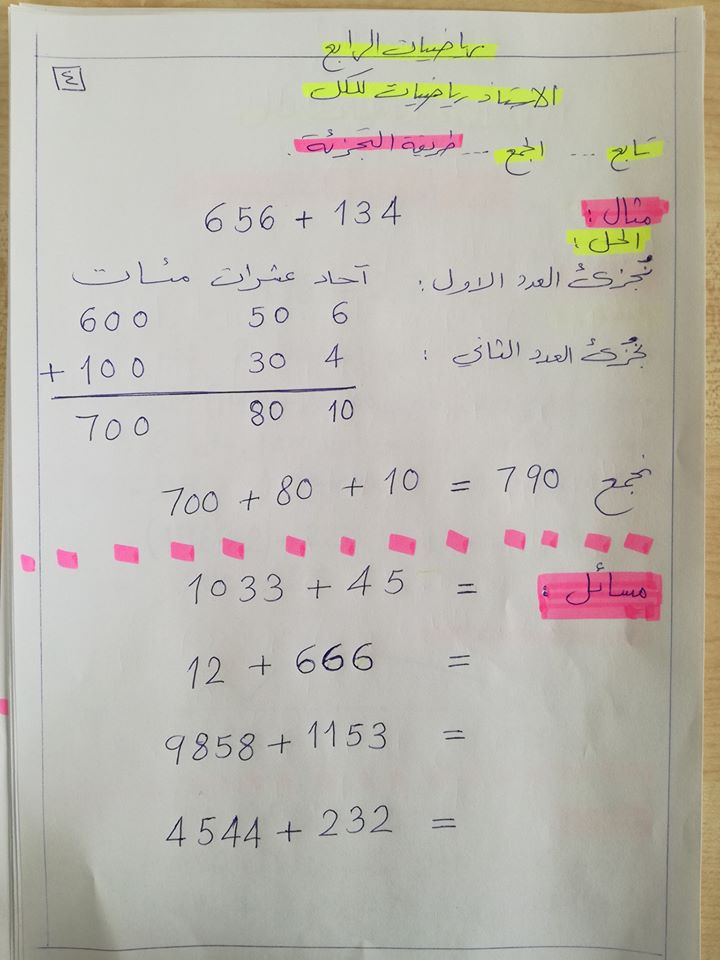 رياضيات الرابع
٤
الاستاذ رياضيات للكل
تابع ... الجمع ... طريقة التجزئة .
مثال :
656 + 134
الحل :
نُجزئ العدد الاول : آحاد عشرات مئات
600 50 6
نُجزئ العدد الثاني :
+ 100 30 4
700 80 10
نجمع 700 + 80 + 10 = 790
مسائل :
1033 + 45 =
12 + 666 =
9858 + 1153 =
4544 + 232 =